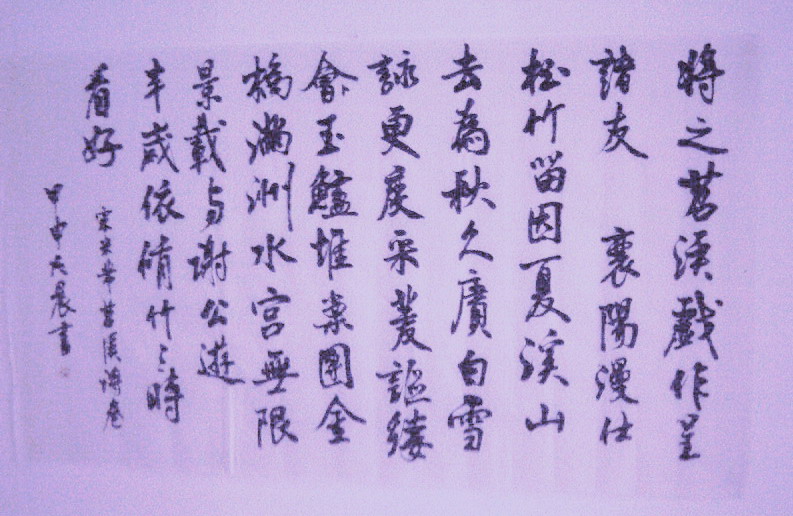 將之苕溪戲作呈
諸友 襄陽漫仕
松竹留因夏溪山
去為秋久賡白雪
詠更度采菱謳縷
會玉鱸堆案團金
橘滿洲水宮無限
景載与謝公遊
半歲依脩竹三時
看好
宋米芾苕溪詩卷
甲申晨書